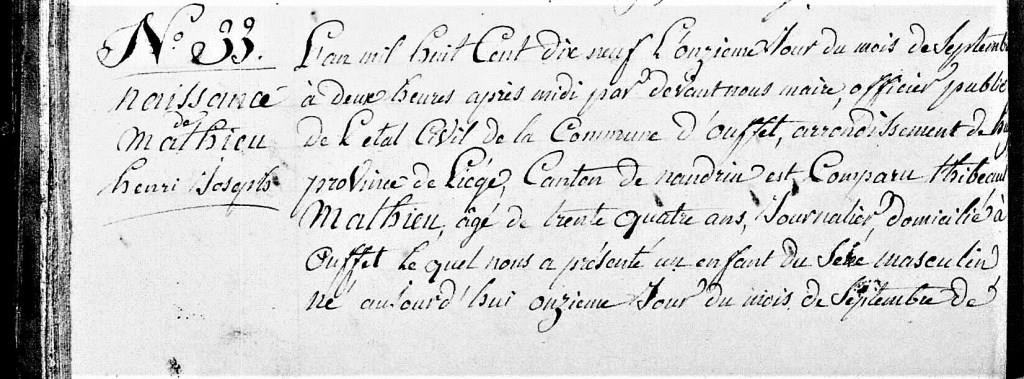 N.º 33.
naissance
de
Mathieu
henri Joseph
L'an mil huit Cent dix neuf L'onzieme Jour du mois de Septemb
à deux heures après midi par devant nous maire, officier public
de L'etat Civil de la Commune d'Ouffet, arrondissement de hu
province de Liége, Canton de nandrin est Comparu thibeau
Mathieu, âgé de trente quatre ans, Journalier, domicilié à
Ouffet le quel nous a présenté un enfant du Sexe masculin
né aujourd'hui onzieme Jour du mois de Septembre de